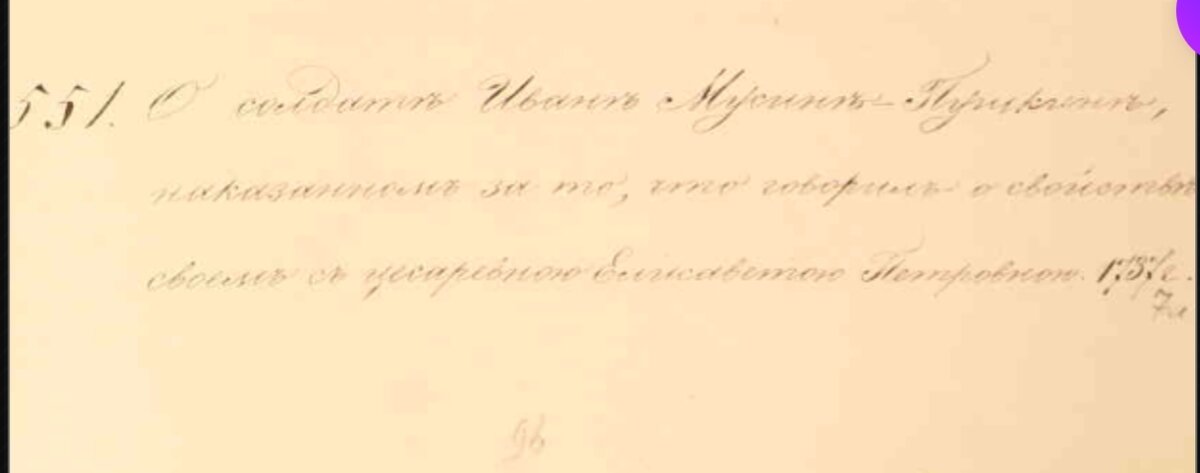 551. О солдатѣ Иванѣ Мусинѣ-Пушкинѣ,
наказанномъ за то, что говорилъ о свойствѣ
своемъ съ цесаревною Елисаветою Петровною. 1737 г.
7 л
96